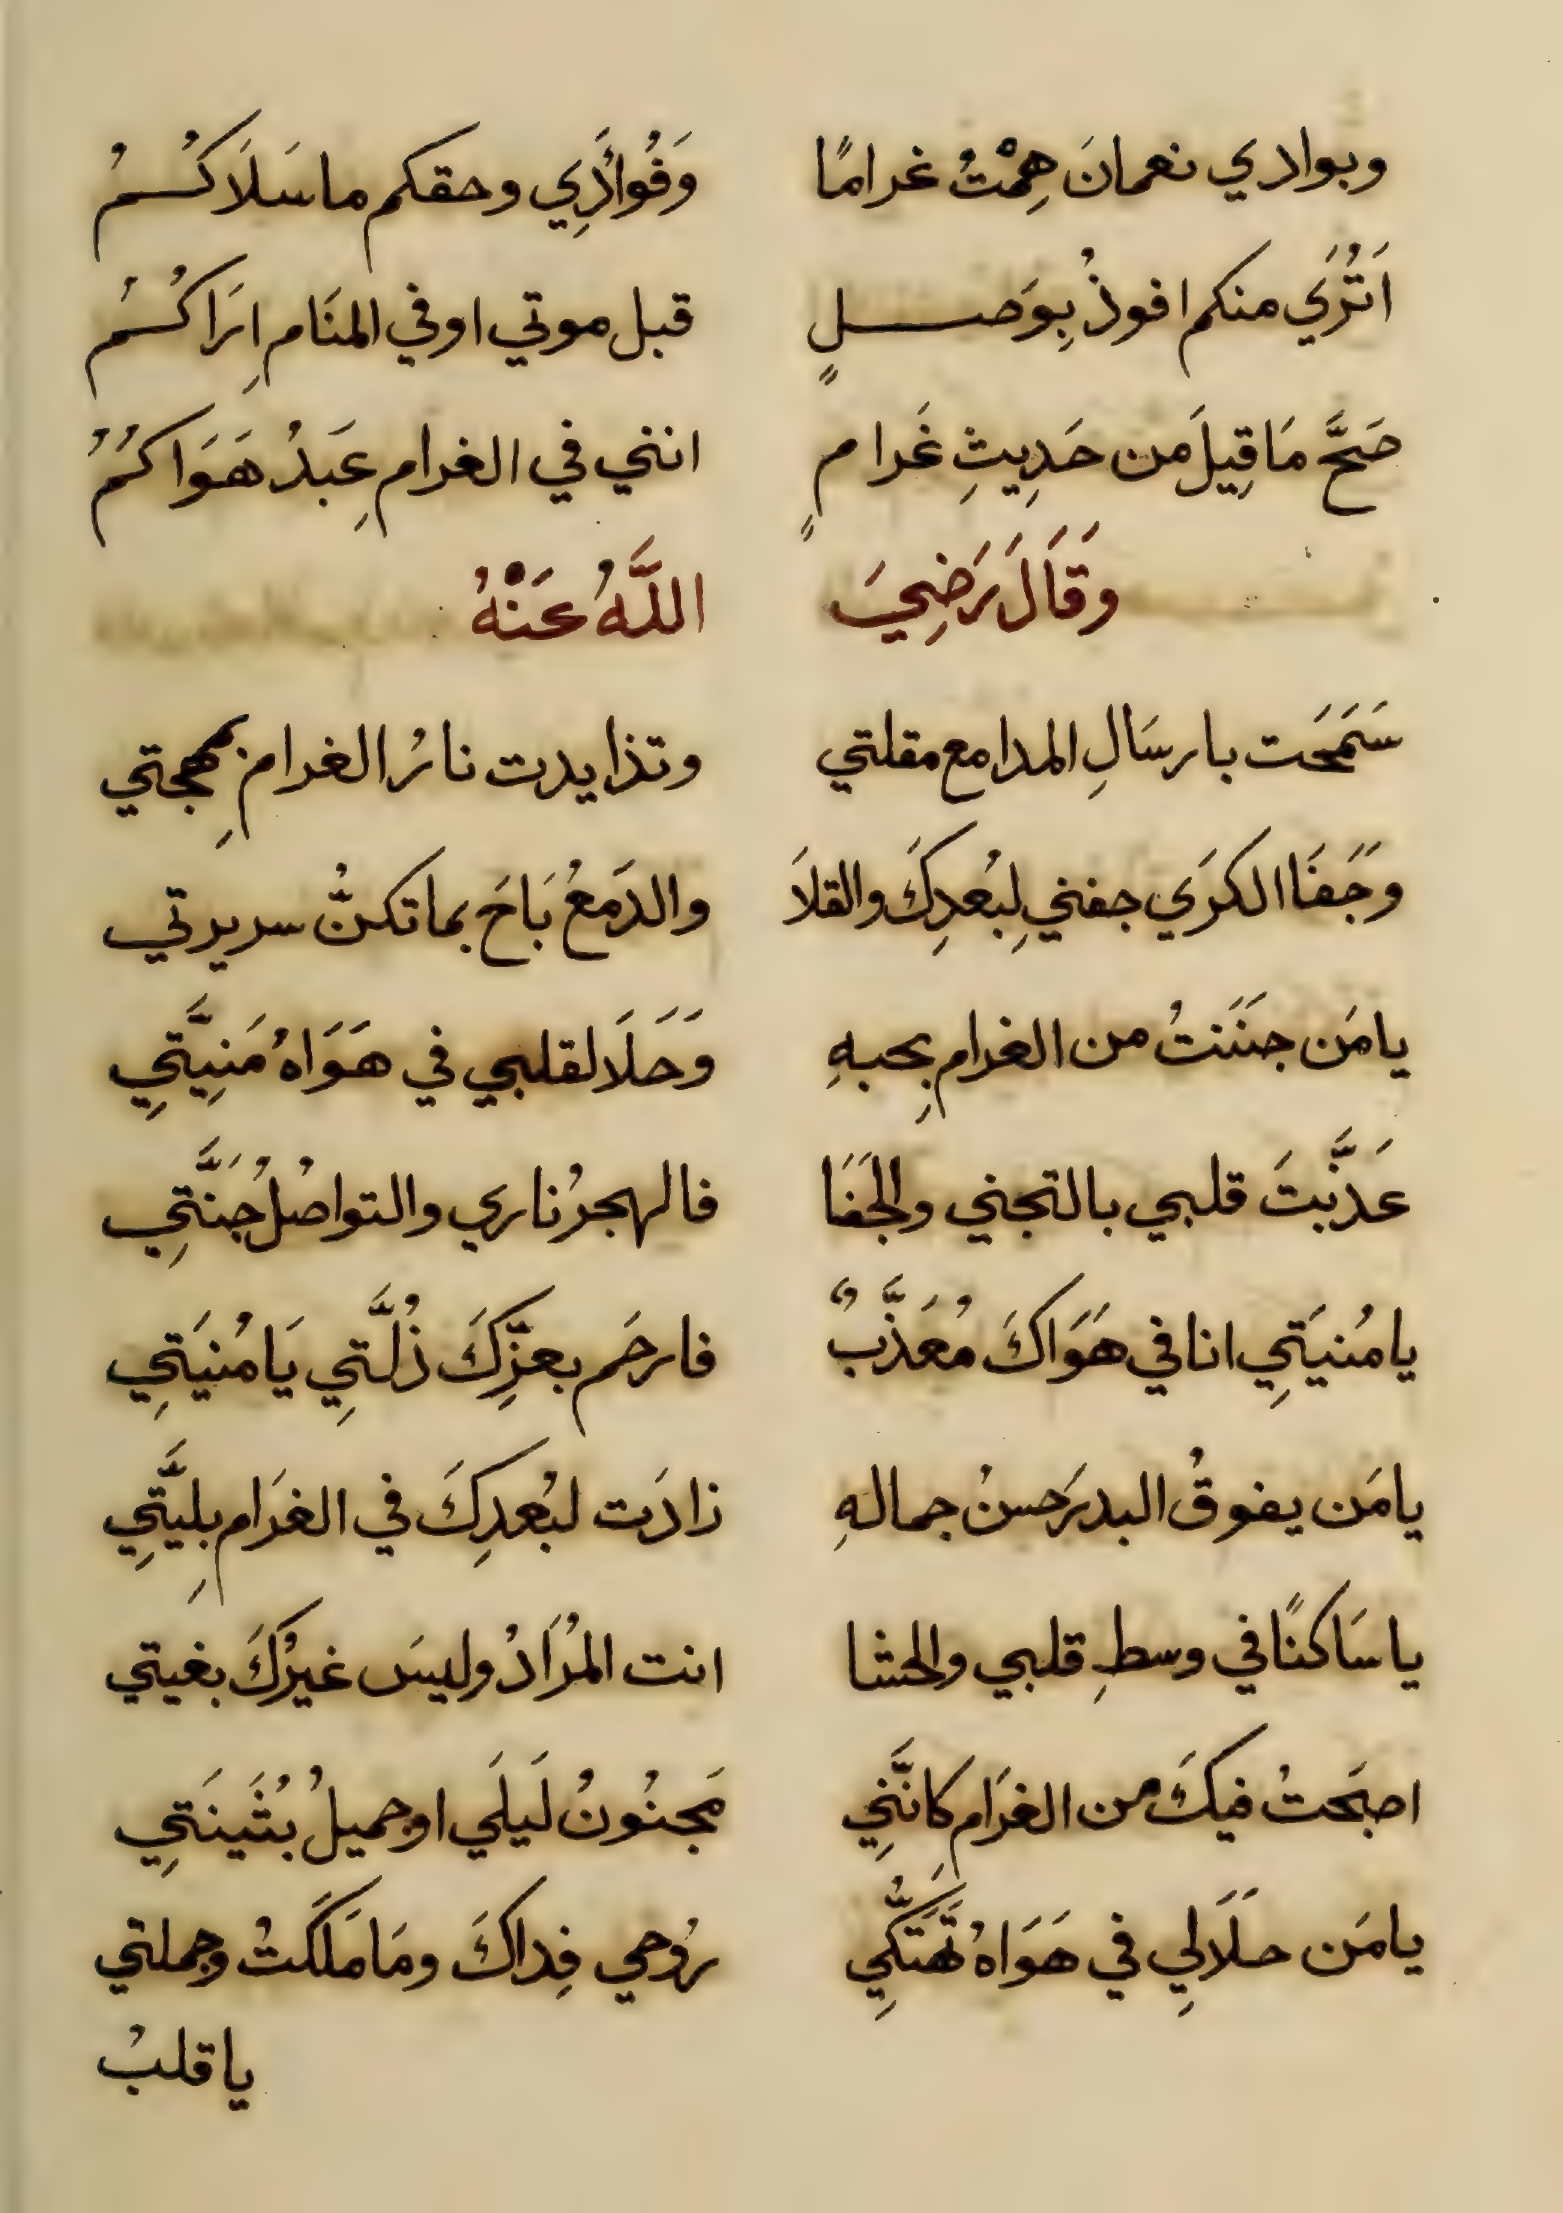 وبوادي نعمانَ هِمْتُ غرامًا وَفُوأَدِي وحقكم ما سَلَاكُمُ
اَتُرَي منكم افوذُ بِوَصلٍ قبل موتي اوفي المنَام اِرَاكُمُ
صَحَّ مَا قِيلَ مَن حَدِيثِ غَرامٍ انني في الغرام عِبَدُ هَوَاكُمُ
وَقَالَ رَضِيَ اللَّهُ عَنْهُ
سَمَحَت بارسَالِ المدامع مقلتي وتذايدت نارُ الغرام بِمهجتي
وَجَفَا الكرَي جفني لِبُعدِكَ والقلاَ والدَمعُ بَاحَ بما تكنُّ سريرتي
يامَن جنَنتُ من الغرام بِحبهِ وَحَلَا لقلبي في هَوَاهُ مَنِيَّتِي
عَذَّبتَ قلبي بالتجني والجَفَا فالهجرُ ناري والتواصُلُ جَنَّتِي
يامُنيَتِي انا في هَوَاكَ مُعَذَّبٌ فارحَم بعزِّكَ ذُلَّتِي يَامُنيَتِي
يامَن يفوقُ البدرَ حسنُ جمالهِ زادَت لبُعدِكَ في الغرَام بِليَّتِي
ياسَاكنًا في وسطِ قلبي والحشا انت المُرَادُ وليسَ غيرُكَ بغيتي
اصبَحتُ فيكَ من الغرَامِ كانَّنِي مَجنُونُ لَيلَي اوجميلُ بُثَينَتِي
يامَن حلَالِي في هَوَاهُ تَهَتُّكِي رُوحي فِداكَ ومَا مَلَكتُ وجملتي
ياقلبُ